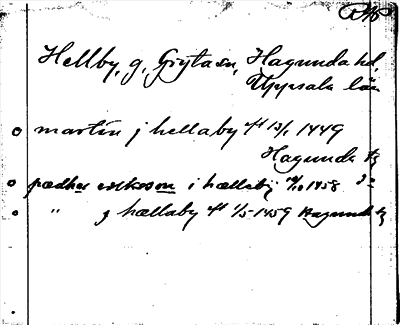 Hellby, g, Gryta sn, Hagunda hd,
Uppsala län
martin j hellaby 13/1 1449
Hagunda tg
pædher i hælleby 1458 do
" j hællaby 1/5 1459 Hagund tg